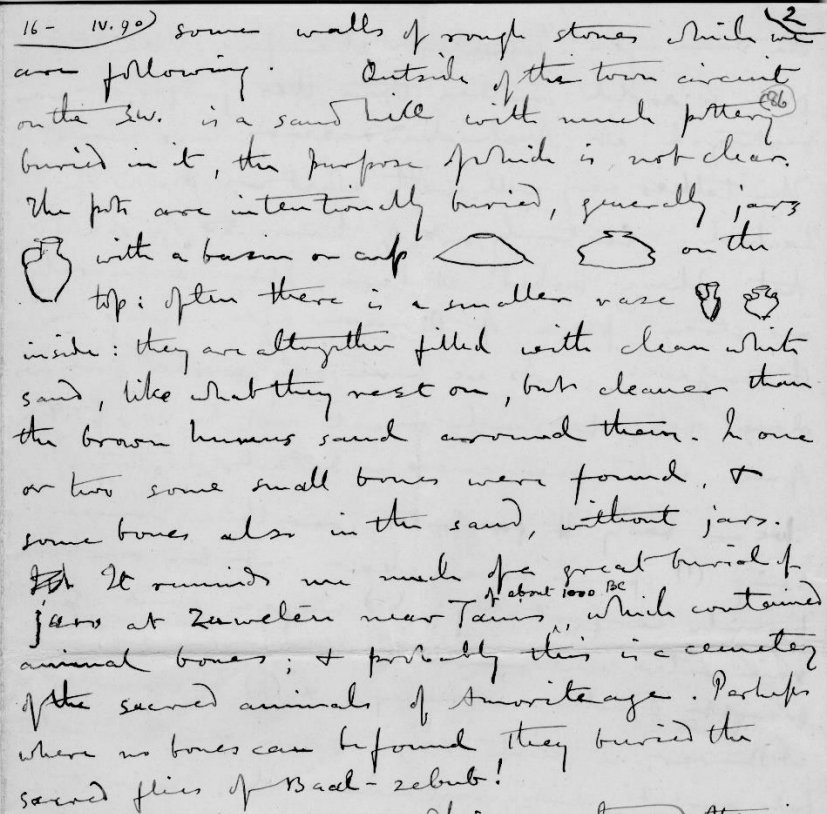 16 - IV. 90) some walls of rough stones which we
2
are following. Outside of the town circuit
86
on the SW. is a sand hill with much pottery
buried in it, the purpose of which is not clear.
The pots are intentionally buried, generally jars
with a basin or cup on the
top: often there is a smaller vase
inside: they are altogether filled with clean white
sand, like what they rest on, but cleaner than
the brown humus sand around them. In one
or two some small bones were found, &
some bones also in the sand, without jars.
It reminds me much of a great burial of
of about 1000 BC
jars at Zuwelen near Tanis, which contained
animal bones; & probably this is a cemetery
of the sacred animals of Amorite age. Perhaps
where no bones can be found they buried the
sacred flies of Baal-zebub!